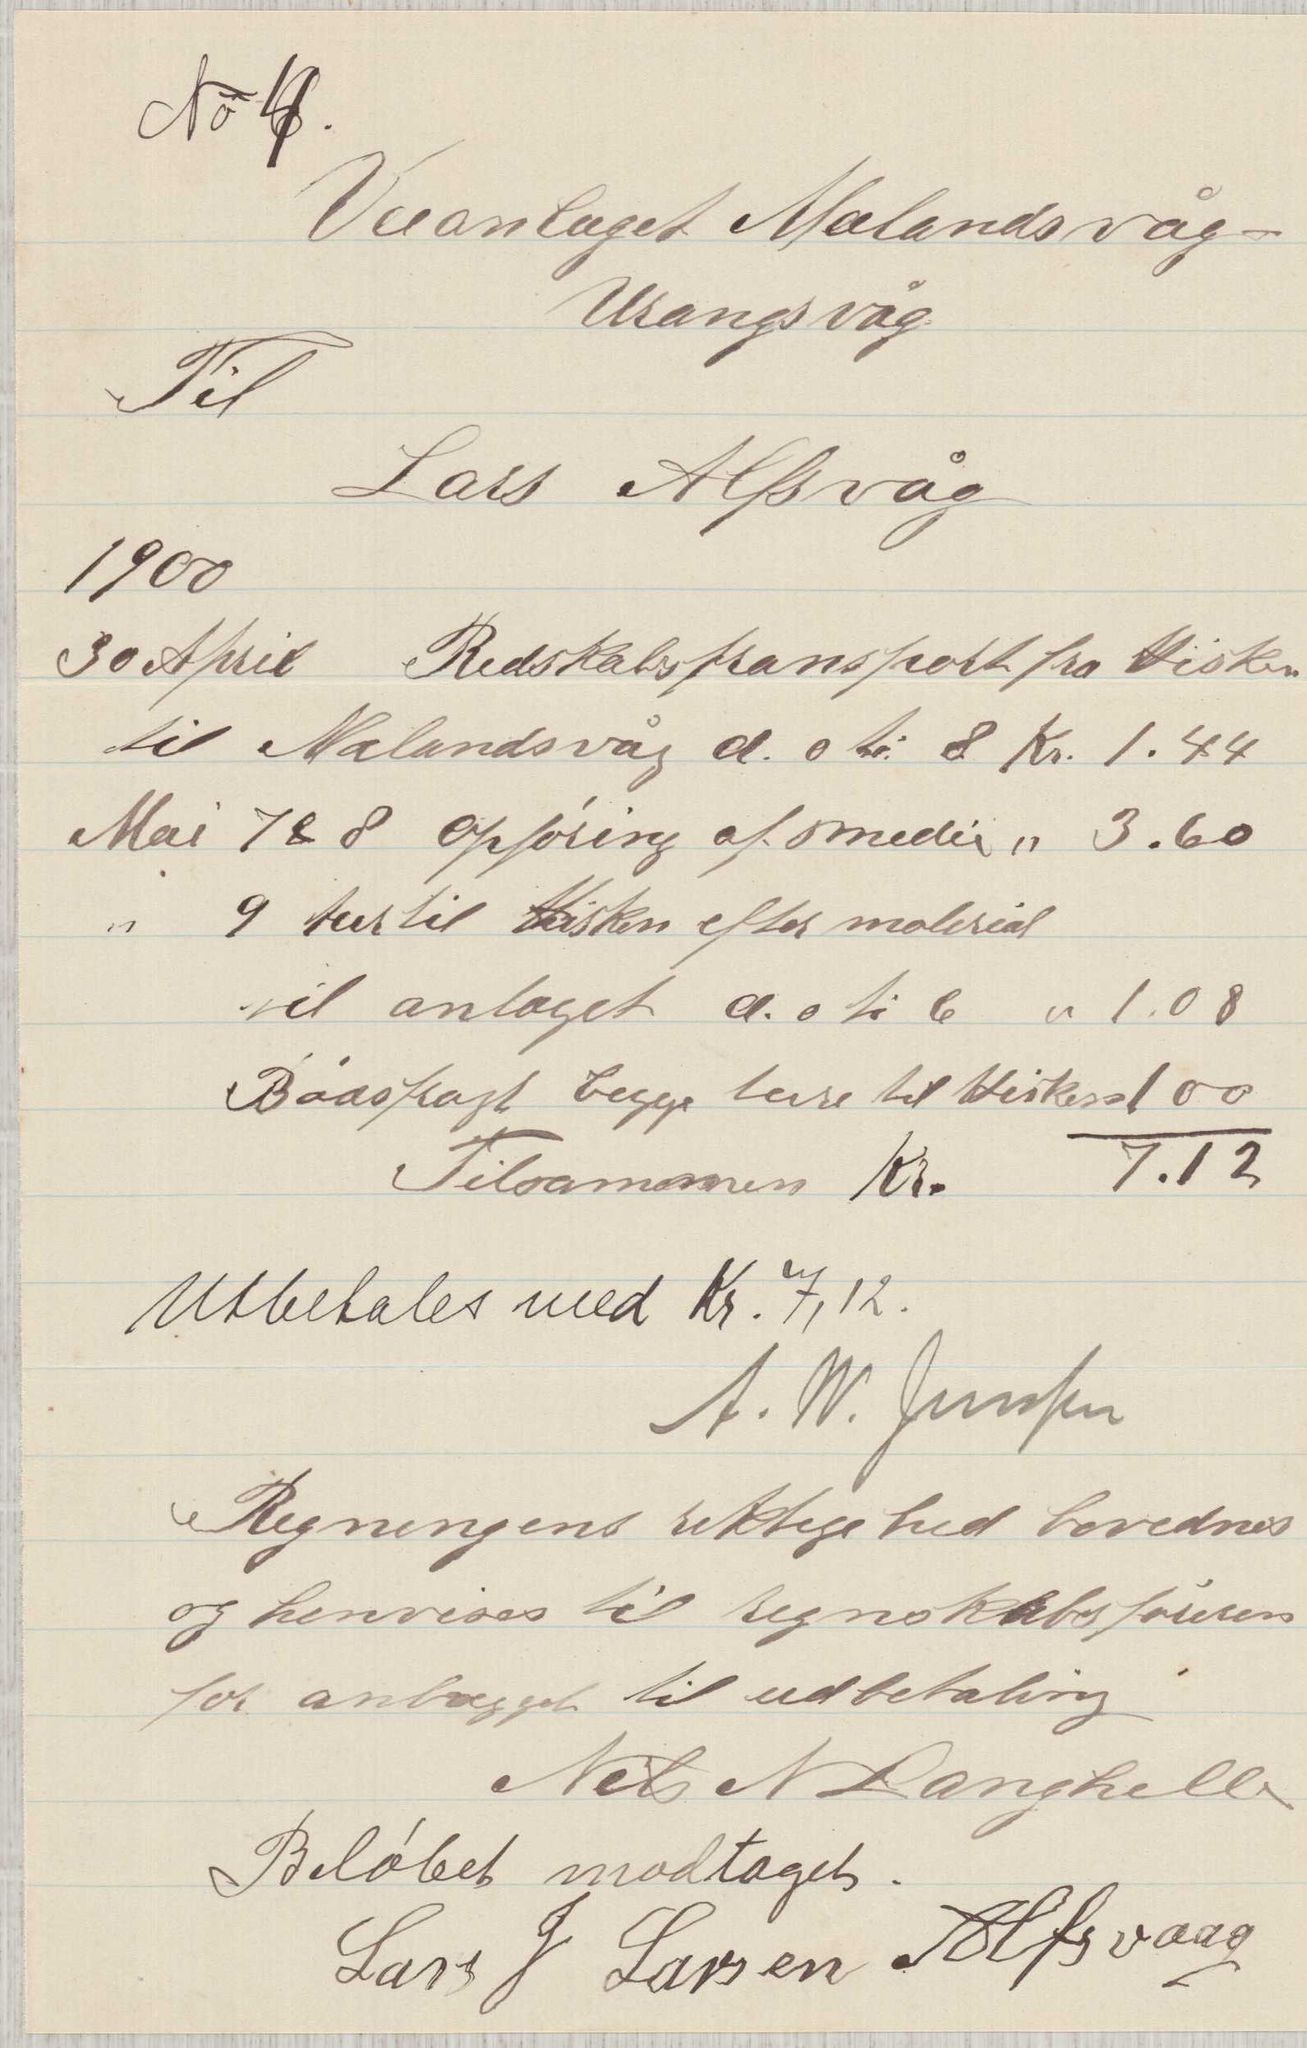 No
Veianlæget Mælandsvåg-
Urangsvåg
Til
Lars Alfsvåg
1900
30 April Redskabstransport fra Hisken
til Mælandsvåg a. o ti. 8 Kr. 1.44
Mai 7 & 8 Opføring af smedie " 3.60
" 9 tur til Hisken efter material
til anlæget a. o ti 6 " 1.08
Bådsfragt begge ture til Hisken 1 00
Tilsammen Kr. 7.12
Utbetales med Kr. 7,12.
A. W.
Regningens rektighed bevidnes
og henvises til regnskabsføreren
for anlægget til udbetaling
Nils N Langhelle
Beløbet modtaget.
Lars J Larsen Alfsvaag